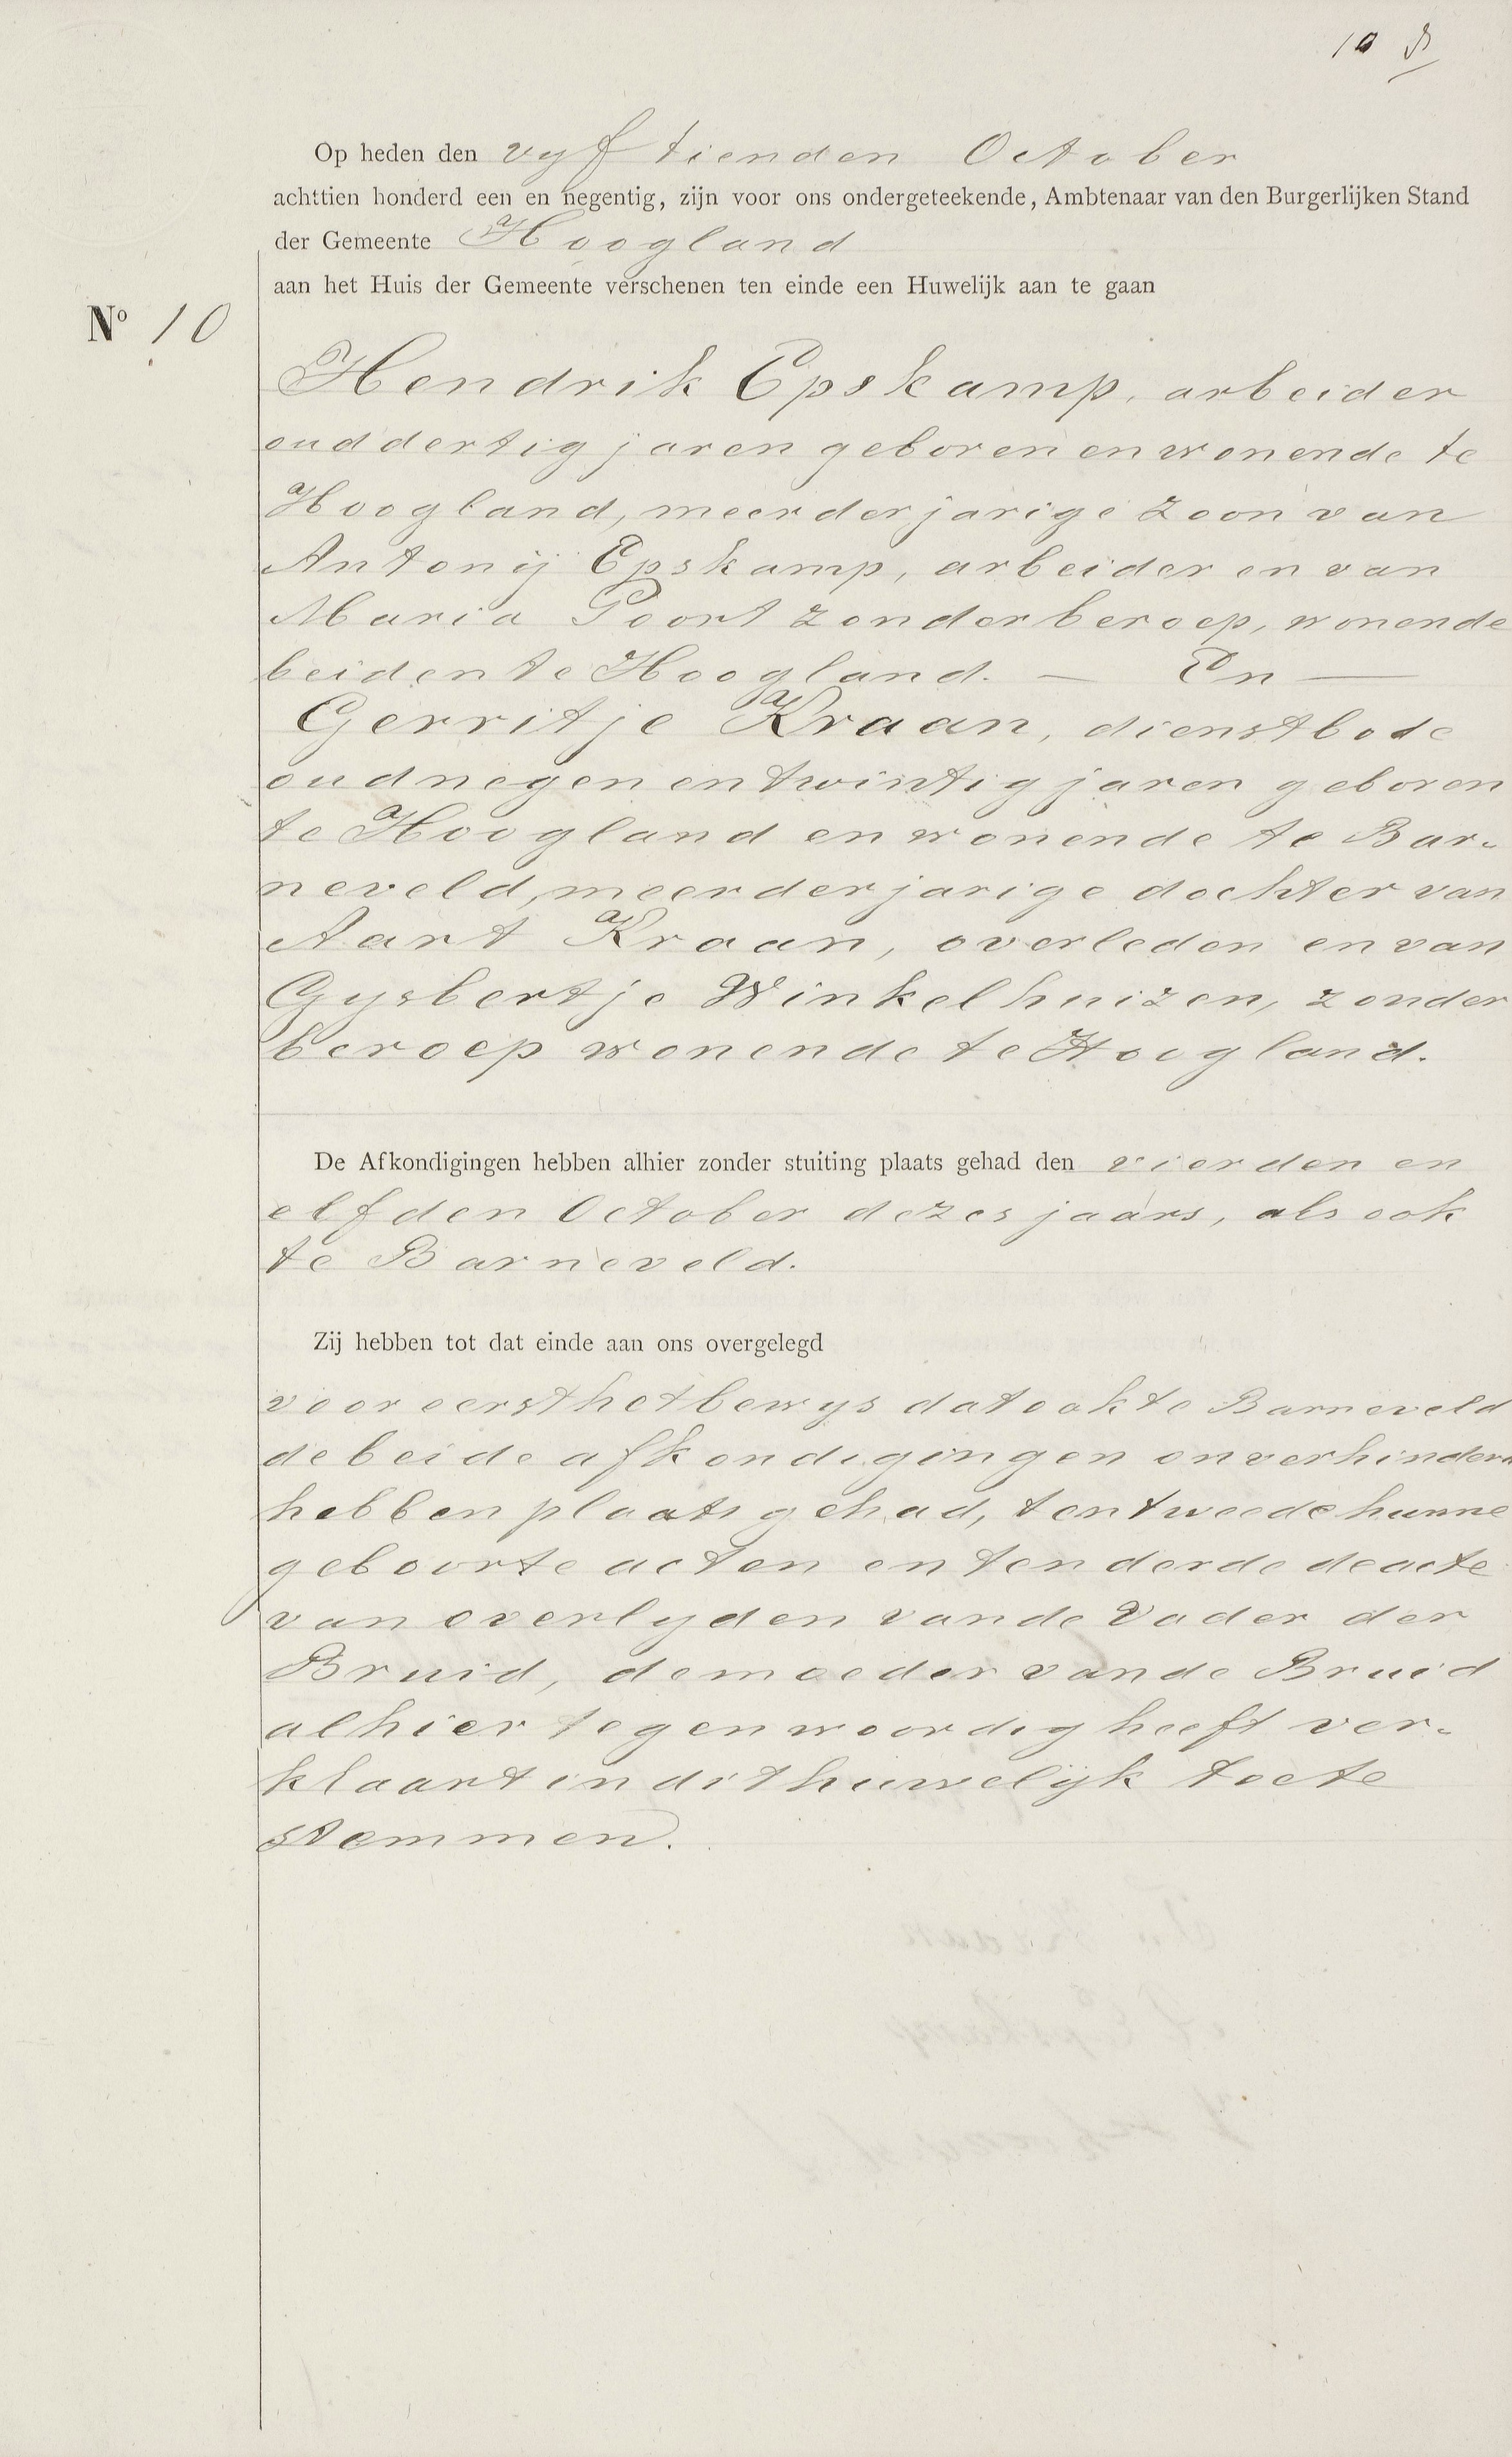 10
Op heden den vyftienden October
achttien honderd een en negentig, zijn voor ons ondergeteekende, Ambtenaar van den Burgerlijken Stand
der Gemeente Hoogland
aan het Huis der Gemeente verschenen ten einde een Huwelijk aan te gaan
No 10
Hendrik Epskamp, arbeider
oud dertig jaren geboren en wonende te
Hoogland, meerderjarige zoon van
Antonij Epskamp, arbeider en van
Maria Poort zonder beroep, wonende
beiden te Hoogland. — En —
Gerritje Kraan, dienstbode
oud negen en twintig jaren geboren
te Hoogland en wonende te Bar-
neveld, meerderjarige dochter van
Aart Kraan, overleden en van
Gysbertje Winkelhuizen, zonder
beroep wonende te Hoogland.
De Afkondigingen hebben alhier zonder stuiting plaats gehad den vierden en
elfden October dezes jaars, als ook
te Barneveld.
Zij hebben tot dat einde aan ons overgelegd
voor eerst het bewys dat ook te Barneveld
de beide afkondigingen onverhinderd
hebben plaats gehad, ten tweede hunne
geboorte acten en ten derde de acte
van overlyden van de Vader der
Bruid, de moeder van de Bruid
alhier tegenwoordig heeft ver-
klaart in dit huwelijk toe te
stemmen.